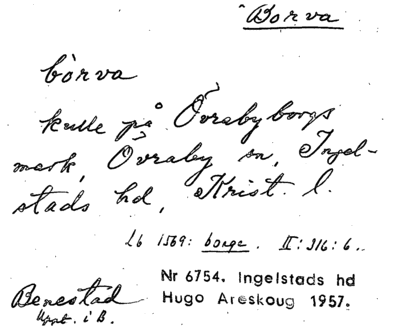 Borva
bòrva
kulle på Övrabyborgs
mark, Övraby sn, Ingel-
stads hd, Krist. l.
Lb 1569: borge. II:316:6.
Nr 6754. Ingelstads hd
Hugo Areskoug 1957.
Benestad
Uppt. i B.